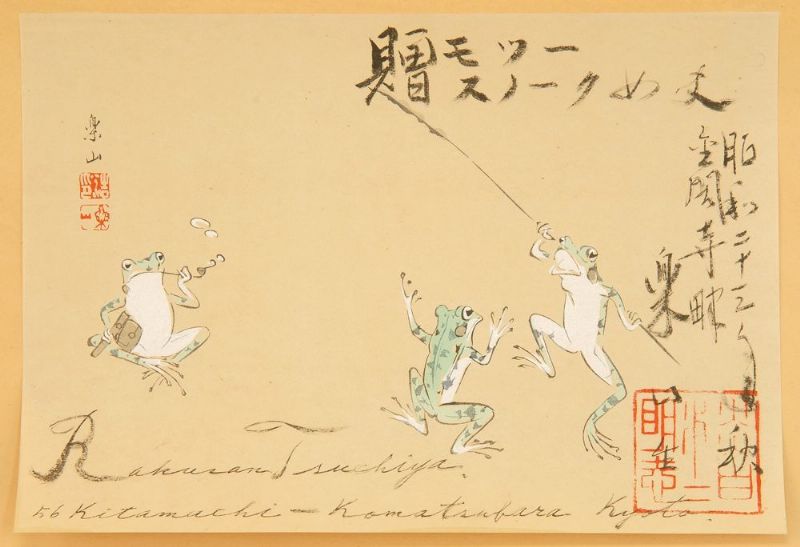 贈 モツー
スノーク め丈
昭和二十三年
金閣寺畔
秋
楽山
楽山
Rakusan Tsuchiya.
56 Kitamachi – Komatsubara Kyoto.